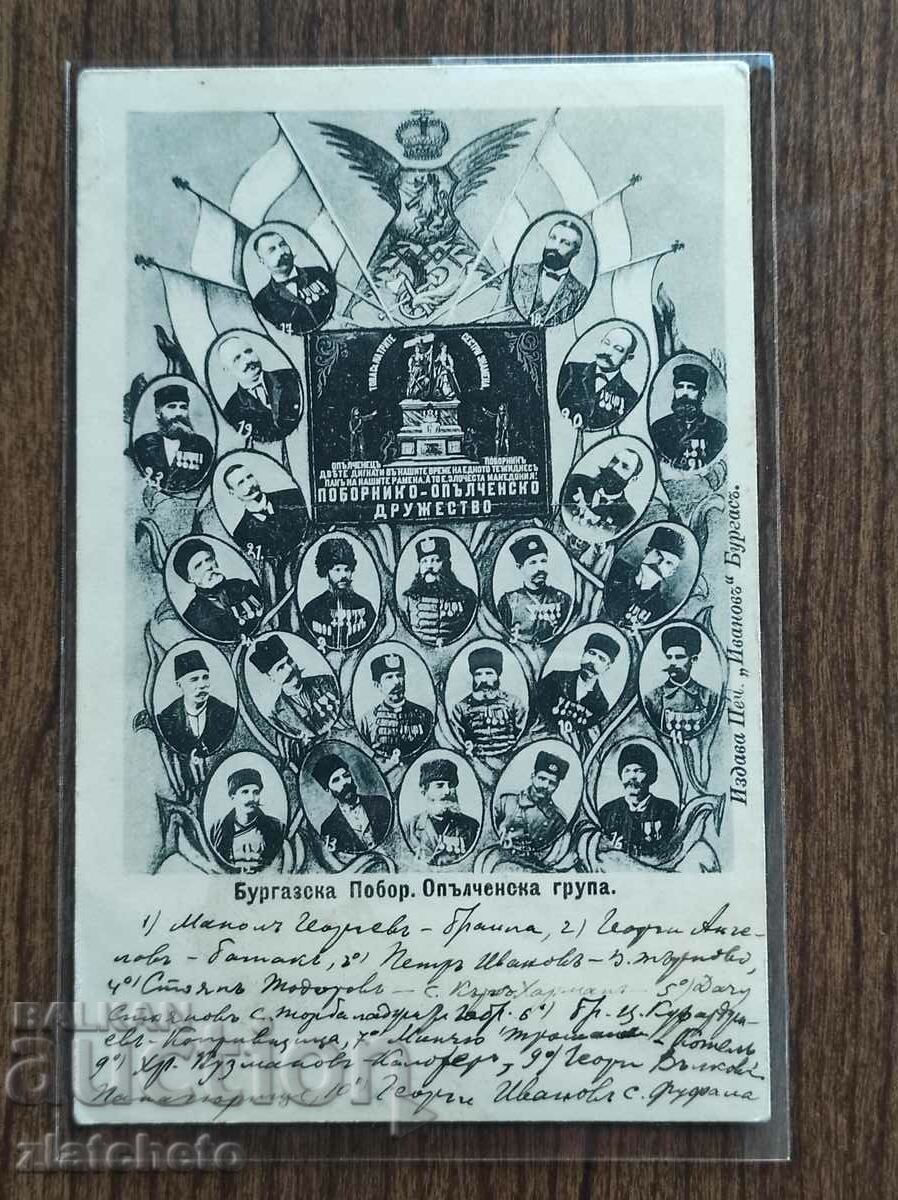 ТОВА СА НА ТРИТЕ СЕСТРИ ЗНАМЕНА
ОПЪЛЧЕНЕЦЪ ПОБОРНИКЪ
ДВѢТЕ ДИГНАТИ ВЪ НАШИТЕ ВРЕМЕ НА ЕДНОТО ТЕЖИ ДНЕСЪ
ПАКЪ НА НАШИТЕ РАМЕНА. А ТО Е ЗЛОЧЕСТА МАКЕДОНИЯ!
ПОБОРНИКО-ОПЪЛЧЕНСКО
ДРУЖЕСТВО
17
18
19
20
23
21
10
11
13
15
16
Издава Печ. „Ивановъ" Бургасъ.
Бургазска Побор. Опълченска група.
1) Манолъ Георгевъ - браила, 2) Георги Анге-
ловъ - батакъ, 3) Петръ Ивановъ - В. търново,
4) Стоянъ Тодоровъ - с. 5) Дачу
Стояновъ с. габр. 6)
евъ - Копривщица, 7) Минчю - Котелъ
Хр. Кузмановъ - Калоферъ, 9) Георги Вълковъ
10) Георги Ивановъ с.
BALKAN
auction
zlatcheto